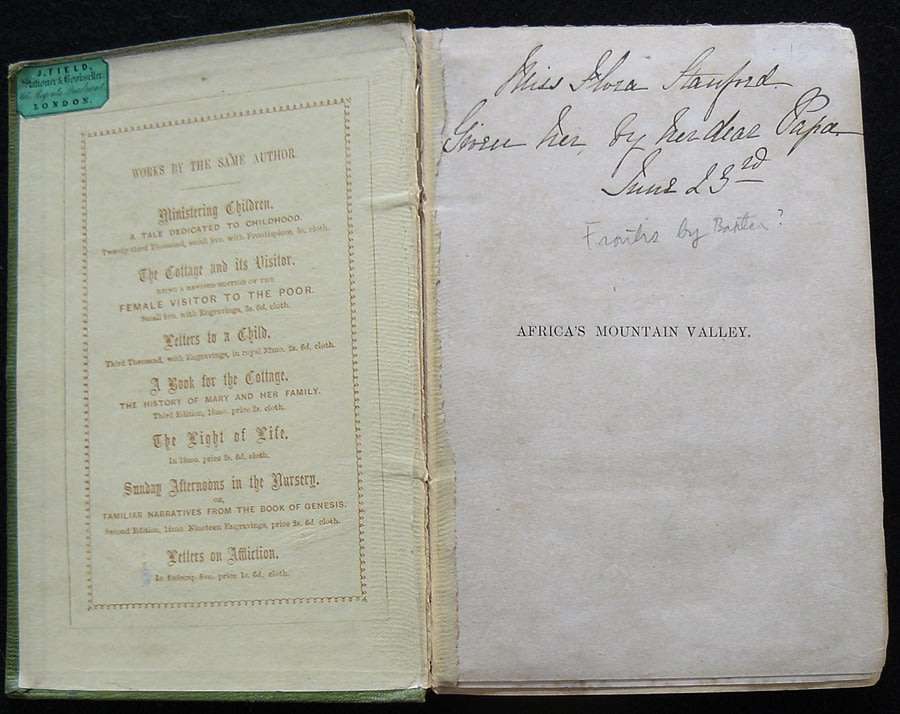 J. FIELD,
Stationer & Bookseller
LONDON.
WORKS BY THE SAME AUTHOR.
Ministering Children.
A TALE DEDICATED TO CHILDHOOD.
Twenty-third Thousand, small 8vo. with Frontispiece, 5s. cloth.
The Cottage and its Visitor.
BEING A REVISED EDITION OF THE
FEMALE VISITOR TO THE POOR.
Small 8vo. with Engravings, 3s. 6d. cloth.
Letters to a Child.
Third Thousand, with Engravings, in royal 32mo. 2s. 6d. cloth.
A Book for the Cottage.
THE HISTORY OF MARY AND HER FAMILY.
Third Edition, 18mo. price 2s. cloth.
The Light of Life.
In 18mo. price 2s. 6d. cloth.
Sunday Afternoons in the Nursery.
OR,
FAMILIAR NARRATIVES FROM THE BOOK OF GENESIS.
Second Edition, 16mo. Nineteen Engravings, price 2s. 6d. cloth.
Letters on Affliction.
In foolscap 8vo. price 1s. 6d. cloth.
Miss Flora Stanford.
Given her, by her dear Papa
June 23rd
Frontis by Baxter?
AFRICA'S MOUNTAIN VALLEY.